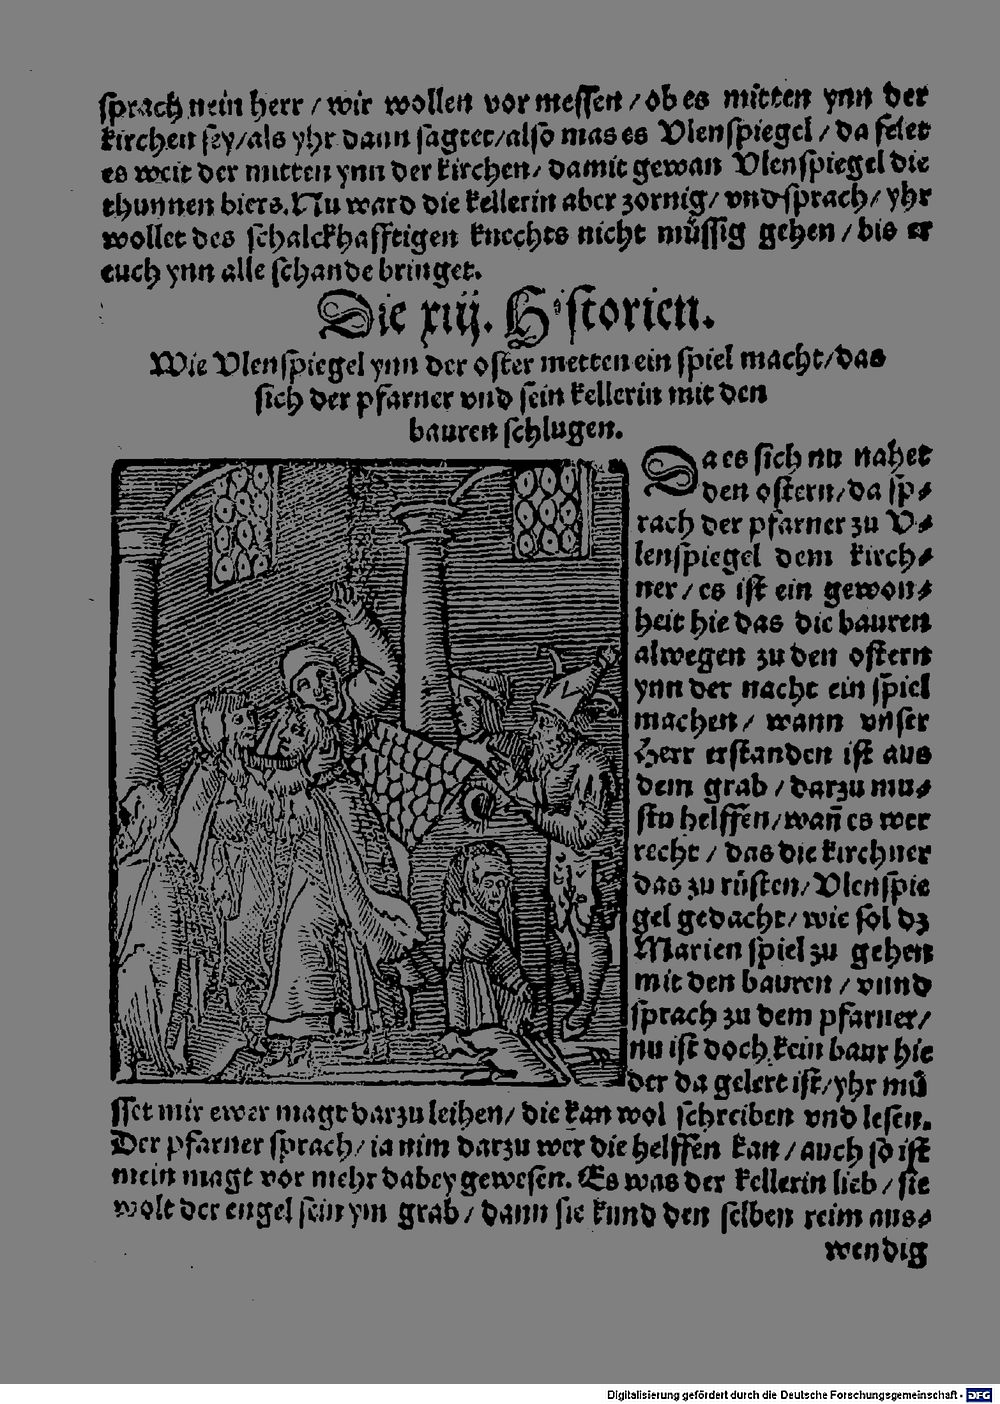 sprach nein herr / wir wollen vor messen / ob es mitten ynn der
kirchen sey/als yhr dann sagtet/also mas es Vlenspiegel / da felet
es weit der mitten ynn der kirchen/ damit gewan Vlenspiegel die
thunnen biers. Nu ward die kellerin aber zornig/ vnd sprach/ yhr
wollet des schalckhafftigen knechts nicht müssig gehen / bis er
euch ynn alle schande bringet.
Die xiij. Historien.
Wie Vlenspiegel ynn der oster metten ein spiel macht/das
sich der pfarner vnd sein kellerin mit den
bauren schlugen.
Da es sich nu nahet
den ostern/da sp⸗
rach der pfarner zu V⸗
lenspiegel dem kirch⸗
ner / es ist ein gewon⸗
heit hie das die bauren
alwegen zu den ostern
ynn der nacht ein spiel
machen / wann vnser
Herr erstanden ist aus
dem grab / darzu mu⸗
stu helffen/wañ es wer
recht / das die kirchner
das zu rüsten/ Vlenspie
gel gedacht/ wie sol dz
Marien spiel zu gehen
mit den bauren / vnnd
sprach zu dem pfarner/
nu ist doch kein baur hie
der da gelert ist/yhr mü
sset mir ewer magt darzu leihen/ die kan wol schreiben vnd lesen.
Der pfarner sprach/ ia nim darzu wer die helffen kan / auch so ist
mein magt vor mehr dabey gewesen. Es was der kellerin lieb / sie
wolt der engel sein ym grab / dann sie kund den selben reim aus⸗
wendig
Digitalisierung gefördert durch die Deutsche Forschungsgemeinschaft - DFG